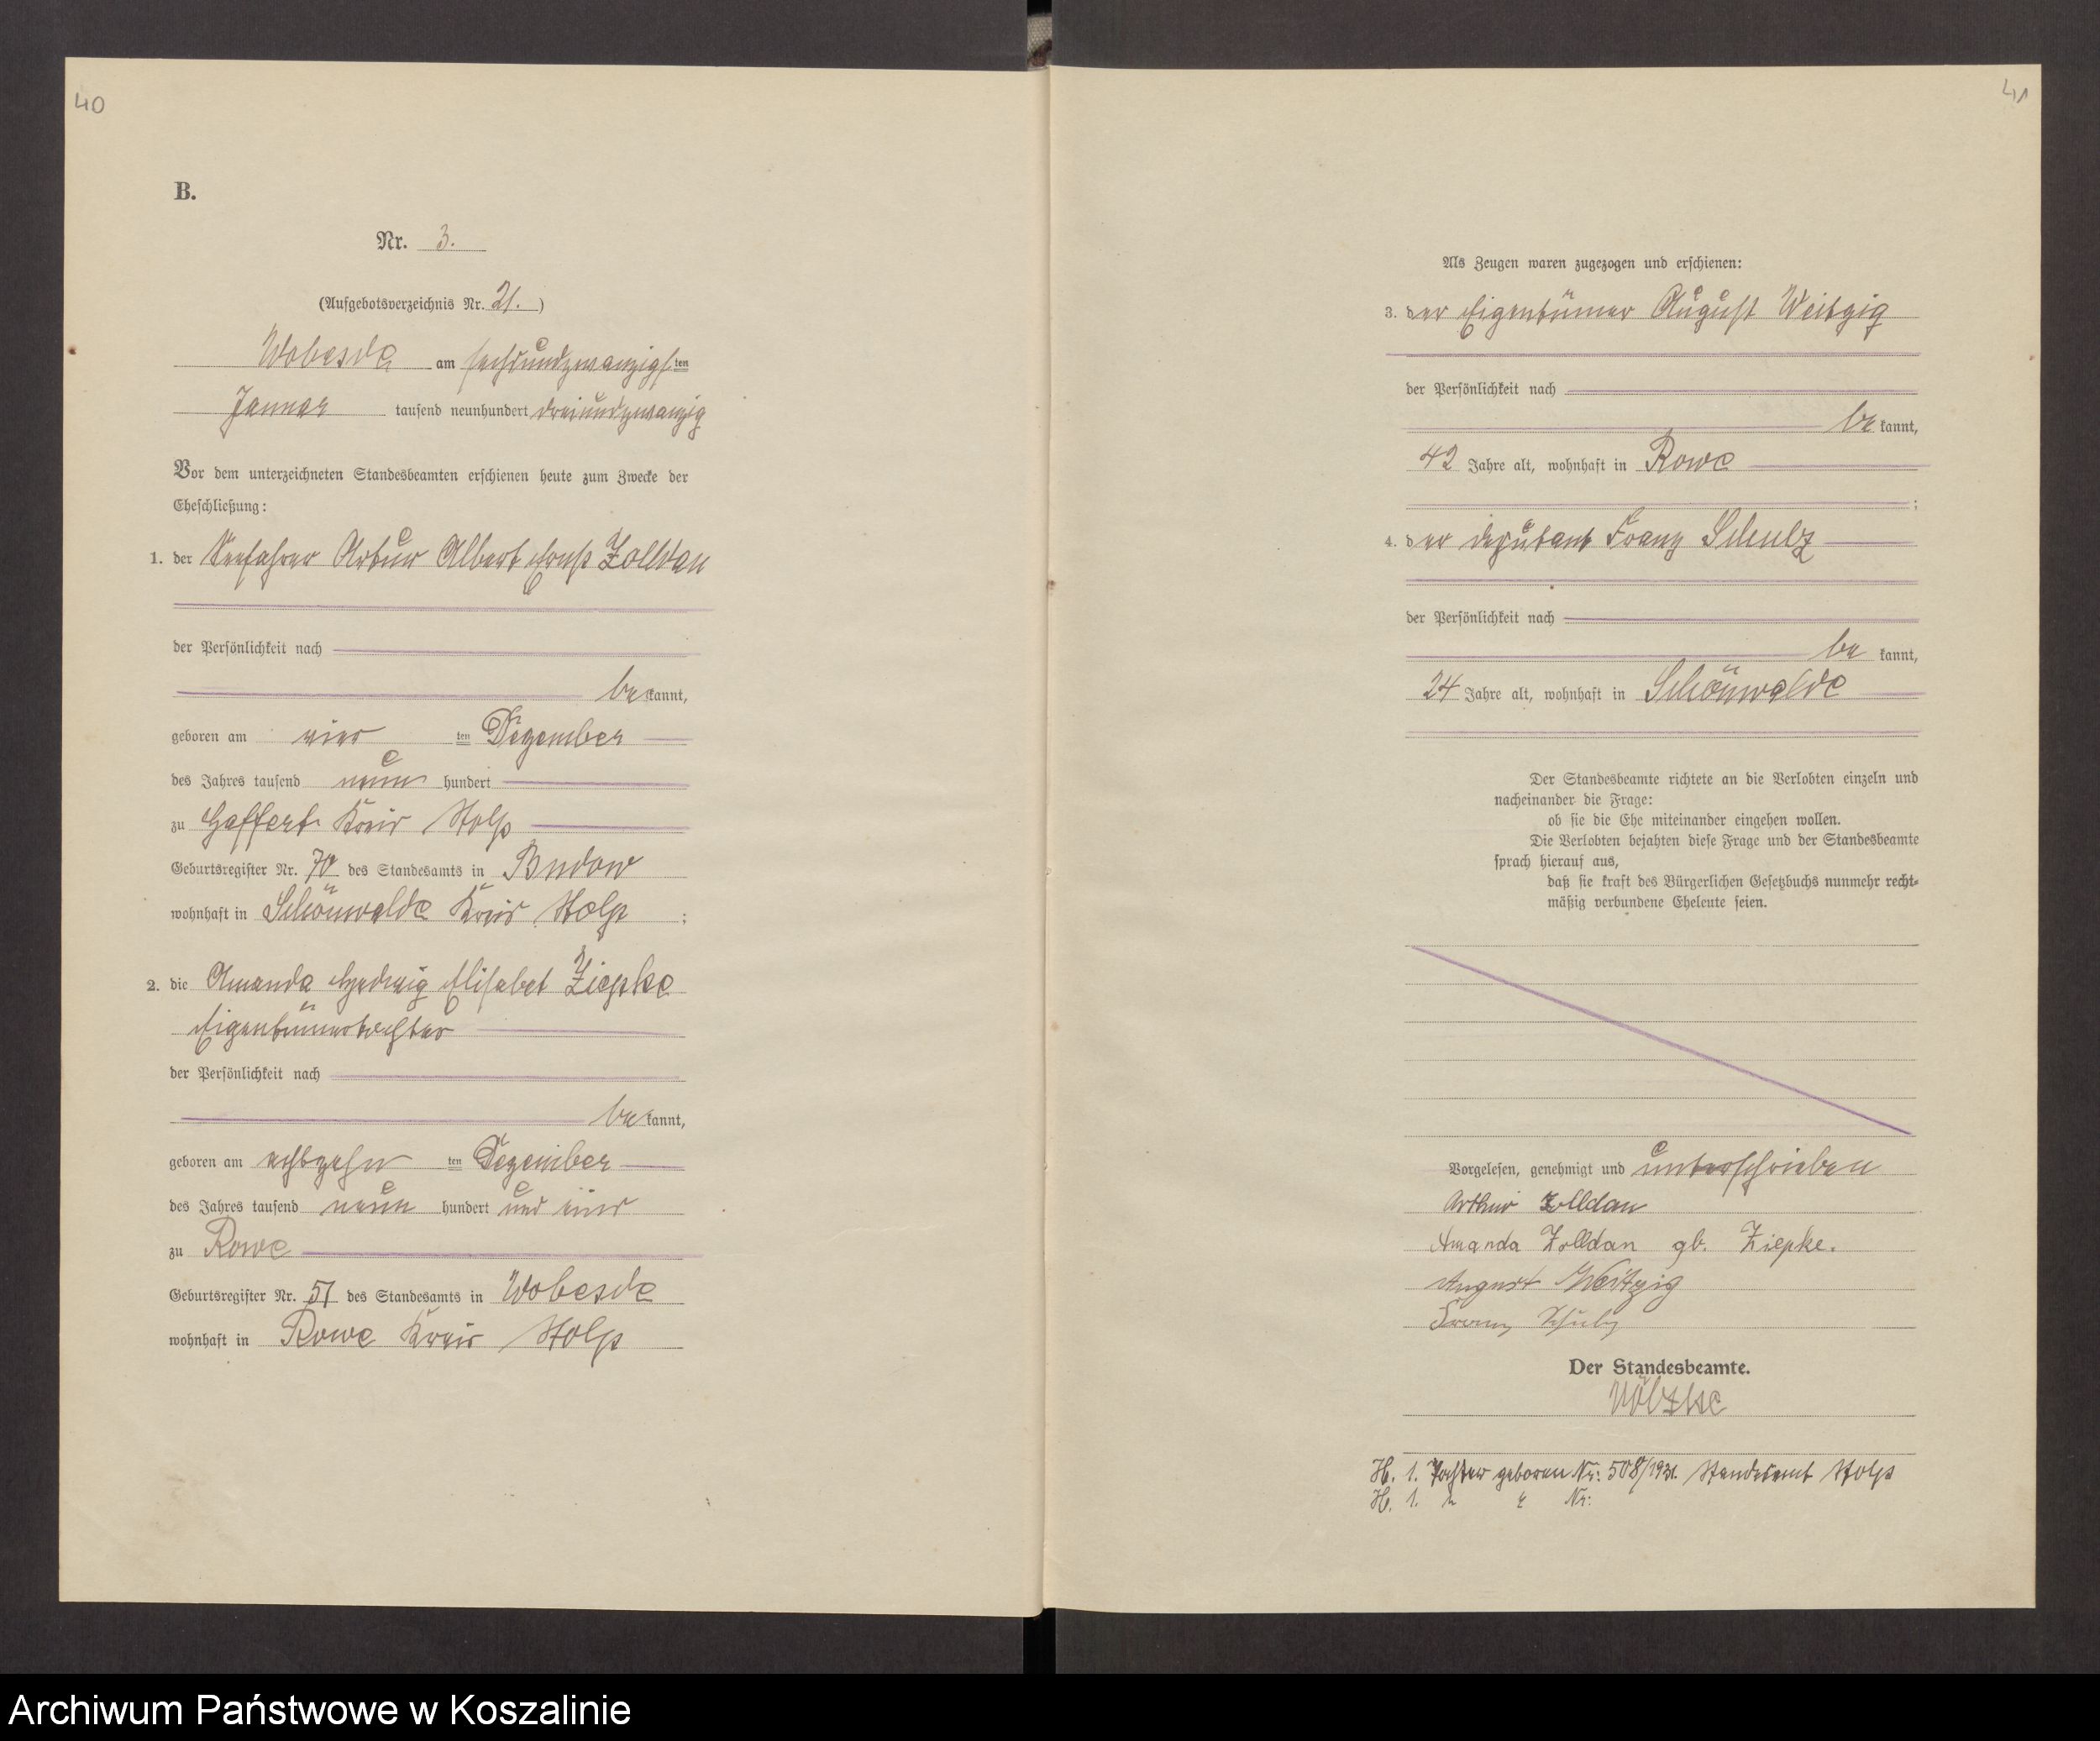 40
B.
Nr. 3.
(Aufgebotsverzeichnis Nr. 21. )
Wobesde am sechsundzwanzigsten
Januar tausend neunhundert dreiundzwanzig
Vor dem unterzeichneten Standesbeamten erschienen heute zum Zwecke der
Eheschließung:
1. der Seefahrer Artur Albert Ernst Zolldan
der Persönlichkeit nach
be kannt,
geboren am vier ten Dezember
des Jahres tausend neun hundert
zu Gaffert Kreis Stolp
Geburtsregister Nr. 70 des Standesamts in Budow
wohnhaft in Schönwalde Kreis Stolp ;
2. die Amanda Hedwig Elisabet Ziepke
Eigentümertochter
der Persönlichkeit nach
be kannt,
geboren am achtzehn ten Dezember
des Jahres tausend neun hundert und eins
zu Rowe
Geburtsregister Nr. 51 des Standesamts in Wobesde
wohnhaft in Rowe Kreis Stolp
41
Als Zeugen waren zugezogen und erschienen:
3. der Eigentümer August Weitzig
der Persönlichkeit nach
be kannt,
42 Jahre alt, wohnhaft in Rowe
;
4. der Deputant Franz Schulz
der Persönlichkeit nach
be kannt,
24 Jahre alt, wohnhaft in Schönwalde
Der Standesbeamte richtete an die Verlobten einzeln und
nacheinander die Frage:
ob sie die Ehe miteinander eingehen wollen.
Die Verlobten bejahten diese Frage und der Standesbeamte
sprach hierauf aus,
daß sie kraft des Bürgerlichen Gesetzbuchs nunmehr recht-
mäßig verbundene Eheleute seien.
Vorgelesen, genehmigt und unterschrieben
Arthur Zolldan
Amanda Zolldan gb. Ziepke.
August Weitzig
Franz Schulz
Der Standesbeamte.
Nötzke
H. 1. Tochter geboren Nr: 508/1931. Standesamt Stolp
H. 1. " " Nr:
Archiwum Państwowe w Koszalinie